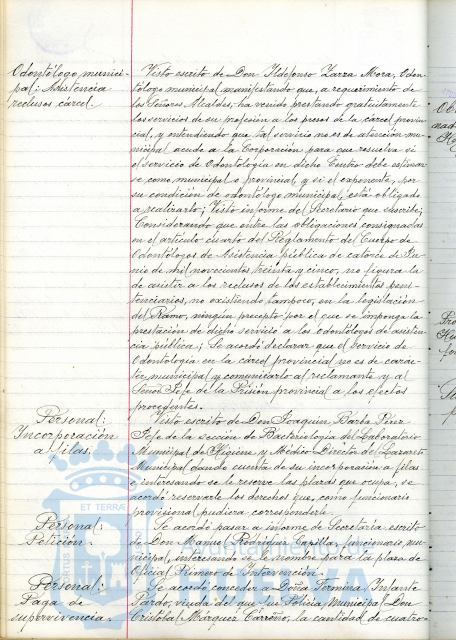 Odontólogo munici-
pal: Asistencia
reclusos cárcel.
Visto escrito de Don Ildefonso Zarza Mora, Odon-
tólogo municipal, manifestando que, a requerimiento de
los Señores Alcaldes, ha venido prestando gratuitamente
los servicios de su profesión a los presos de la cárcel provin-
cial, y entendiendo que tal servicio no es de atención mu-
nicipal acude a la Corporación para que resuelva si
el servicio de Odontología en dicho Centro debe estimar-
se como municipal o provincial y si el exponente, por
su condición de odontólogo municipal, está obligado
a realizarlo; Visto informe del Secretario que suscribe;
Considerando que entre las obligaciones consignadas
en el artículo cuarto del Reglamento del Cuerpo de
Odontólogos de Asistencia pública de catorce de Ju-
nio de mil novecientos treinta y cinco, no figura la
de asistir a los reclusos de los establecimientos peni-
tenciarios, no existiendo tampoco, en la legislación
del Ramo, ningún precepto por el que se imponga la
prestación de dicho servicio a los odontólogos de asisten-
cia pública; Se acordó declarar que el servicio de
Odontología en la cárcel provincial no es de carac-
ter municipal y comunicarlo al reclamante y al
Señor Jefe de la Prisión provincial a los efectos
procedentes.
Personal:
Incorporación
a filas.
Visto escrito de Don Joaquín Barba Pérez
Jefe de la sección de Bacteriología del Laboratorio
Municipal de Higiene y Médico Director del Lazareto
Municipal dando cuenta de su incorporación a filas
e interesando se le reserve las plazas que ocupa, se
acordó reservarle los derechos que, como funcionario
provisional pudiera corresponderle.
Personal:
Petición.
Se acordó pasar a informe de Secretaría escrito
de Don Manuel Rodríguez Capilla, funcionario mu-
nicipal, interesando se le nombre para la plaza de
Oficial Primero de Intervención.
Personal:
Paga de
supervivencia.
Se acordó conceder a Doña Fermina Infante
Pardo, viuda del que fué Policía Municipal Don
Cristóbal Márquez Carreño, la cantidad de cuatro-
ET TERRÆ